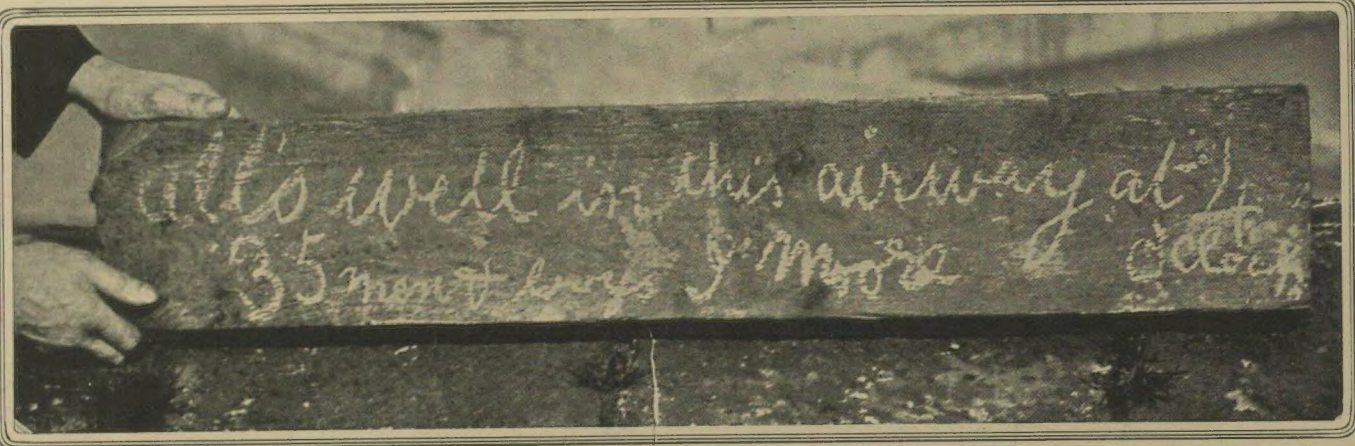 all's well in this airway at 4
35 men & boys J Moore O'Clock